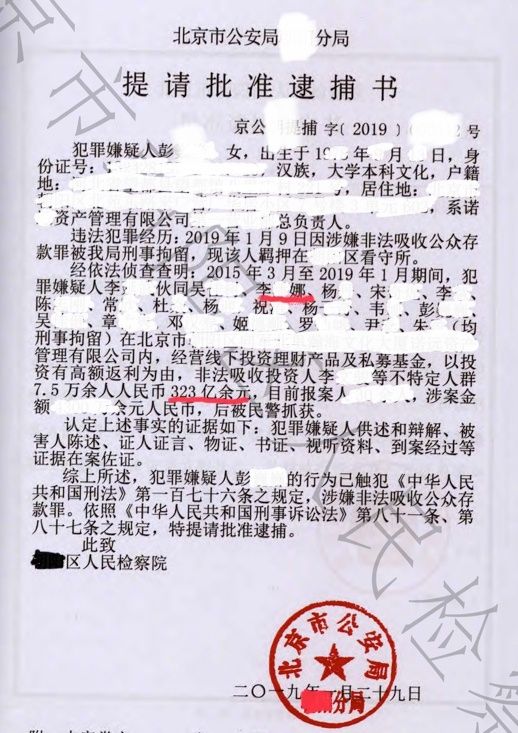 北京市公安局 分局
提请批准逮捕书
京公 提捕字〔2019〕 2号
犯罪嫌疑人彭 女，出生于19 年 月 日，身
份证号： ，汉族，大学本科文化，户籍
地： ，居住地：
，系诺
资产管理有限公司 总负责人。
违法犯罪经历：2019年1月9日因涉嫌非法吸收公众存
款罪被我局刑事拘留，现该人羁押在 区看守所。
经依法侦查查明：2015年3月至2019年1月期间，犯
罪嫌疑人李 伙同吴 、李 娜、杨 、宋 、李 、
陈 、常 、杜 、杨 、祝 、杨 、韦 、彭 、
吴 、章 、邓 、姬 、罗 、尹 、朱 （均
刑事拘留）在北京市
管理有限公司内，经营线下投资理财产品及私募基金，以投
资有高额返利为由，非法吸收投资人李 等不特定人群
7.5万余人人民币323亿余元，目前报案人 ，涉案金
额 余元人民币，后被民警抓获。
认定上述事实的证据如下：犯罪嫌疑人供述和辩解、被
害人陈述、证人证言、物证、书证、视听资料、到案经过等
证据在案佐证。
综上所述，犯罪嫌疑人彭 的行为已触犯《中华人民
共和国刑法》第一百七十六条之规定，涉嫌非法吸收公众存
款罪。依照《中华人民共和国刑事诉讼法》第八十一条、第
八十七条之规定，特提请批准逮捕。
此致
区人民检察院
北京市公安局
分局
二〇一九年一月二十九日